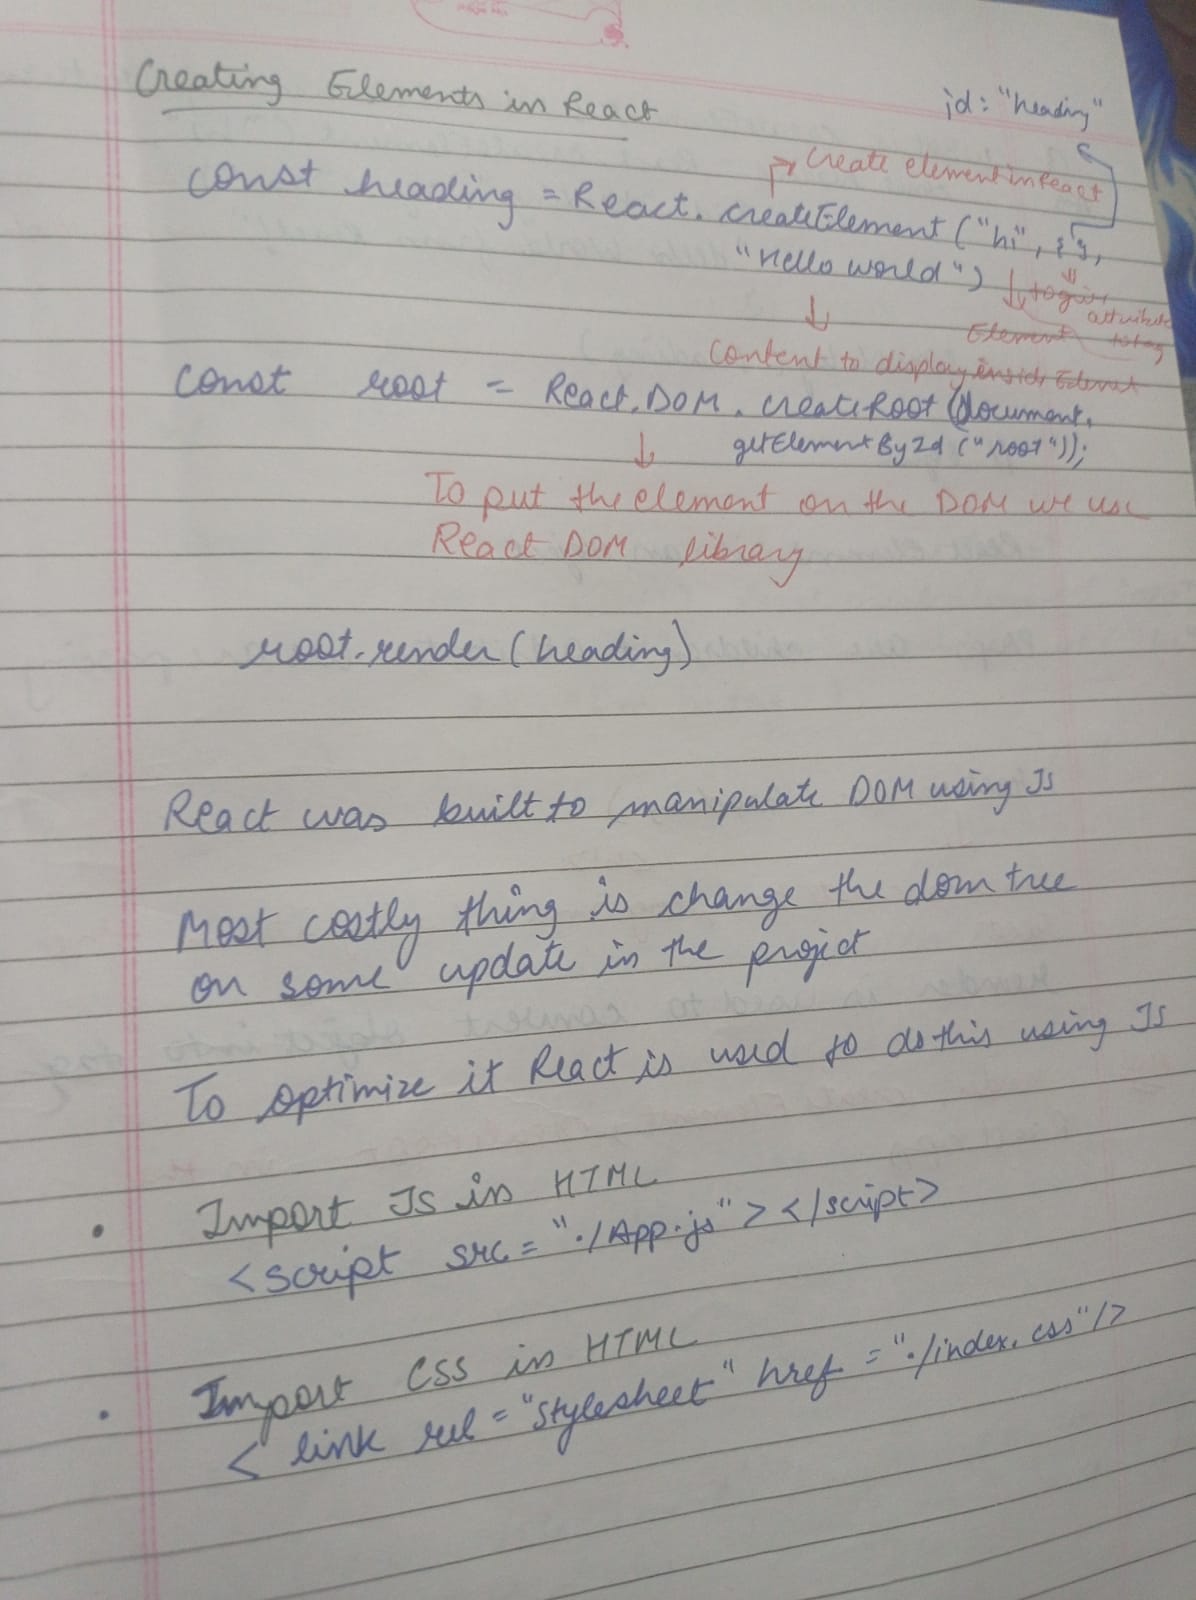 Creating Elements in React
id: "heading"
Create element in React
const heading = React.createElement("h1", {},
"Hello world")
to give attribute to tag
Element
Content to display inside Element
const root = React.DOM.createRoot(document.
getElementById("root"));
To put the element on the DOM we use
React DOM library
root.render(heading)
React was built to manipulate DOM using Js
Most costly thing is change the dom tree
on some update in the project
To optimize it React is used to do this using Js
• Import Js in HTML
<script src="./App.js"></script>
• Import CSS in HTML
<link rel="stylesheet" href="./index.css"/>